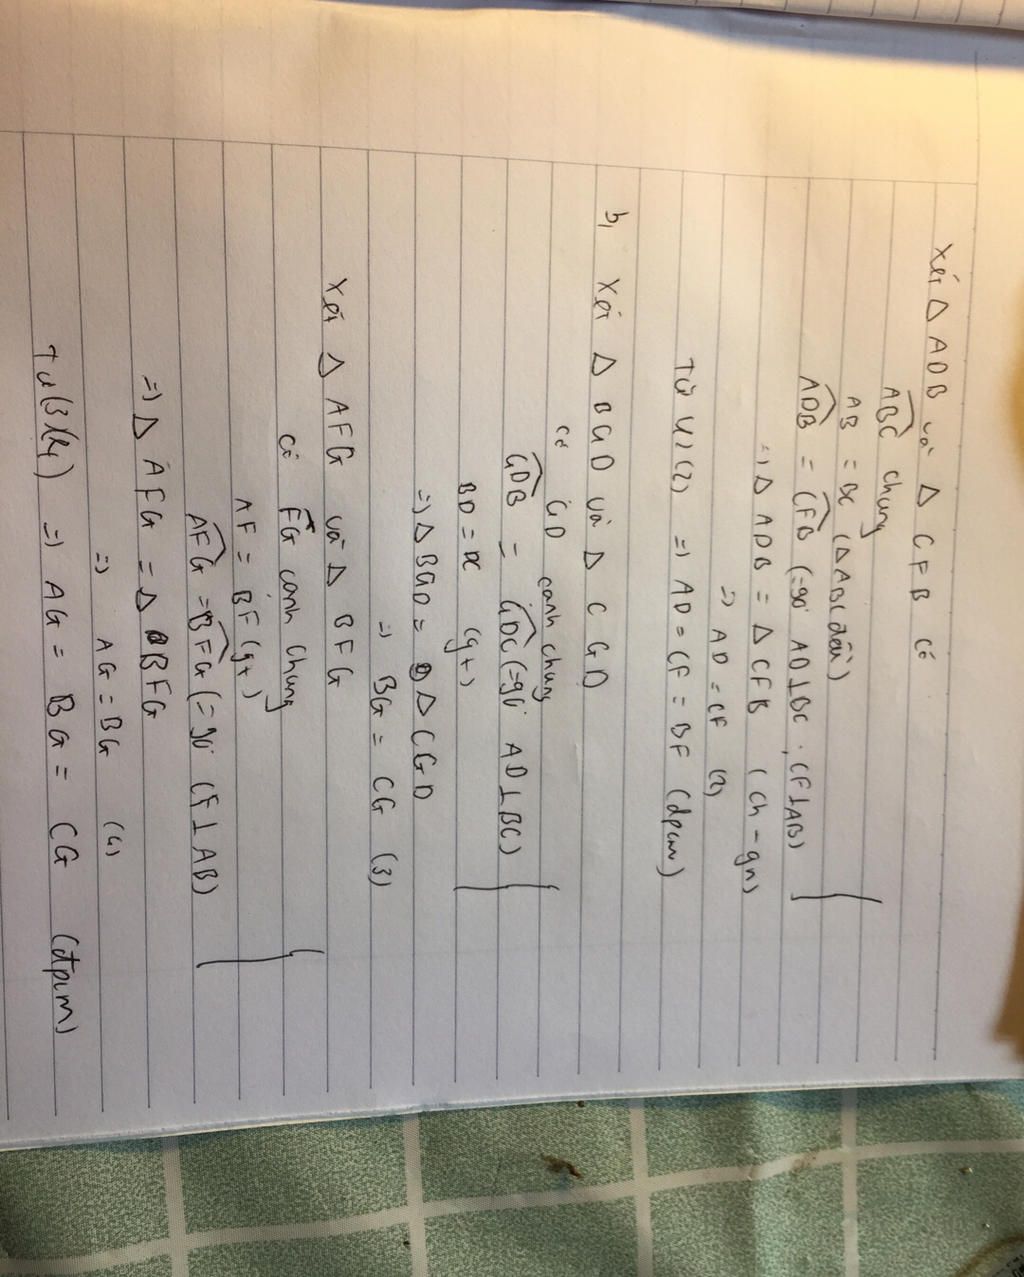 Xét Δ ADB và Δ CFB có
ABC chung
AB = BC (Δ ABC đều)
ADB = CFB (=90° AD⊥BC, CF⊥AB)
=) Δ ADB = Δ CFB (ch - gn)
=) AD = CF (2)
Từ (1) (2) =) AD = CF = BF (đpcm)
b, Xét Δ BGD và Δ CGD
có GD cạnh chung
GDB = GDC (=90° AD⊥BC)
BD = DC (gt)
=) Δ BGD = Δ CGD
=) BG = CG (3)
Xét Δ AFG và Δ BFG
có FG cạnh chung
AF = BF (gt)
AFG = BFG (=90° CF⊥AB)
=) Δ AFG = Δ BFG
=) AG = BG (4)
Từ (3)(4) =) AG = BG = CG (đpcm)